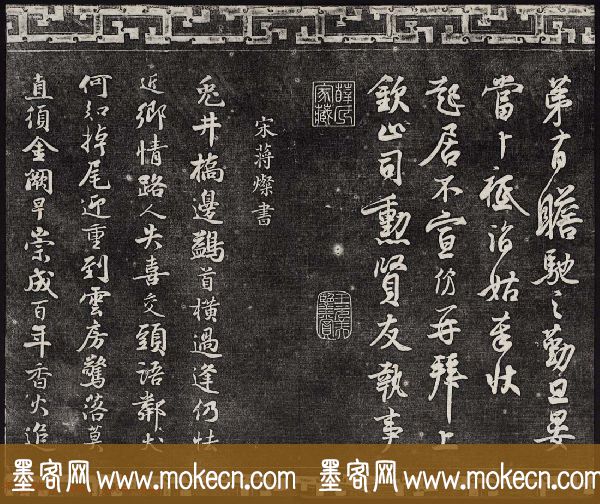 第有瞻馳之勤旦晏
當卜祗詣姑奉狀
起居不宣仿再拜上
欽止司勳賢友執事
薛氏家藏
宋蔣燦書
兎井橋邊鷁首橫過逢仍怯
近鄉情路人失喜交頭語鄰犬
何知掉尾迎重到雲房驚落莫
直須金闕早崇成百年香火追
墨客网 www.mokecn.com 墨客网 www.mokecn.com